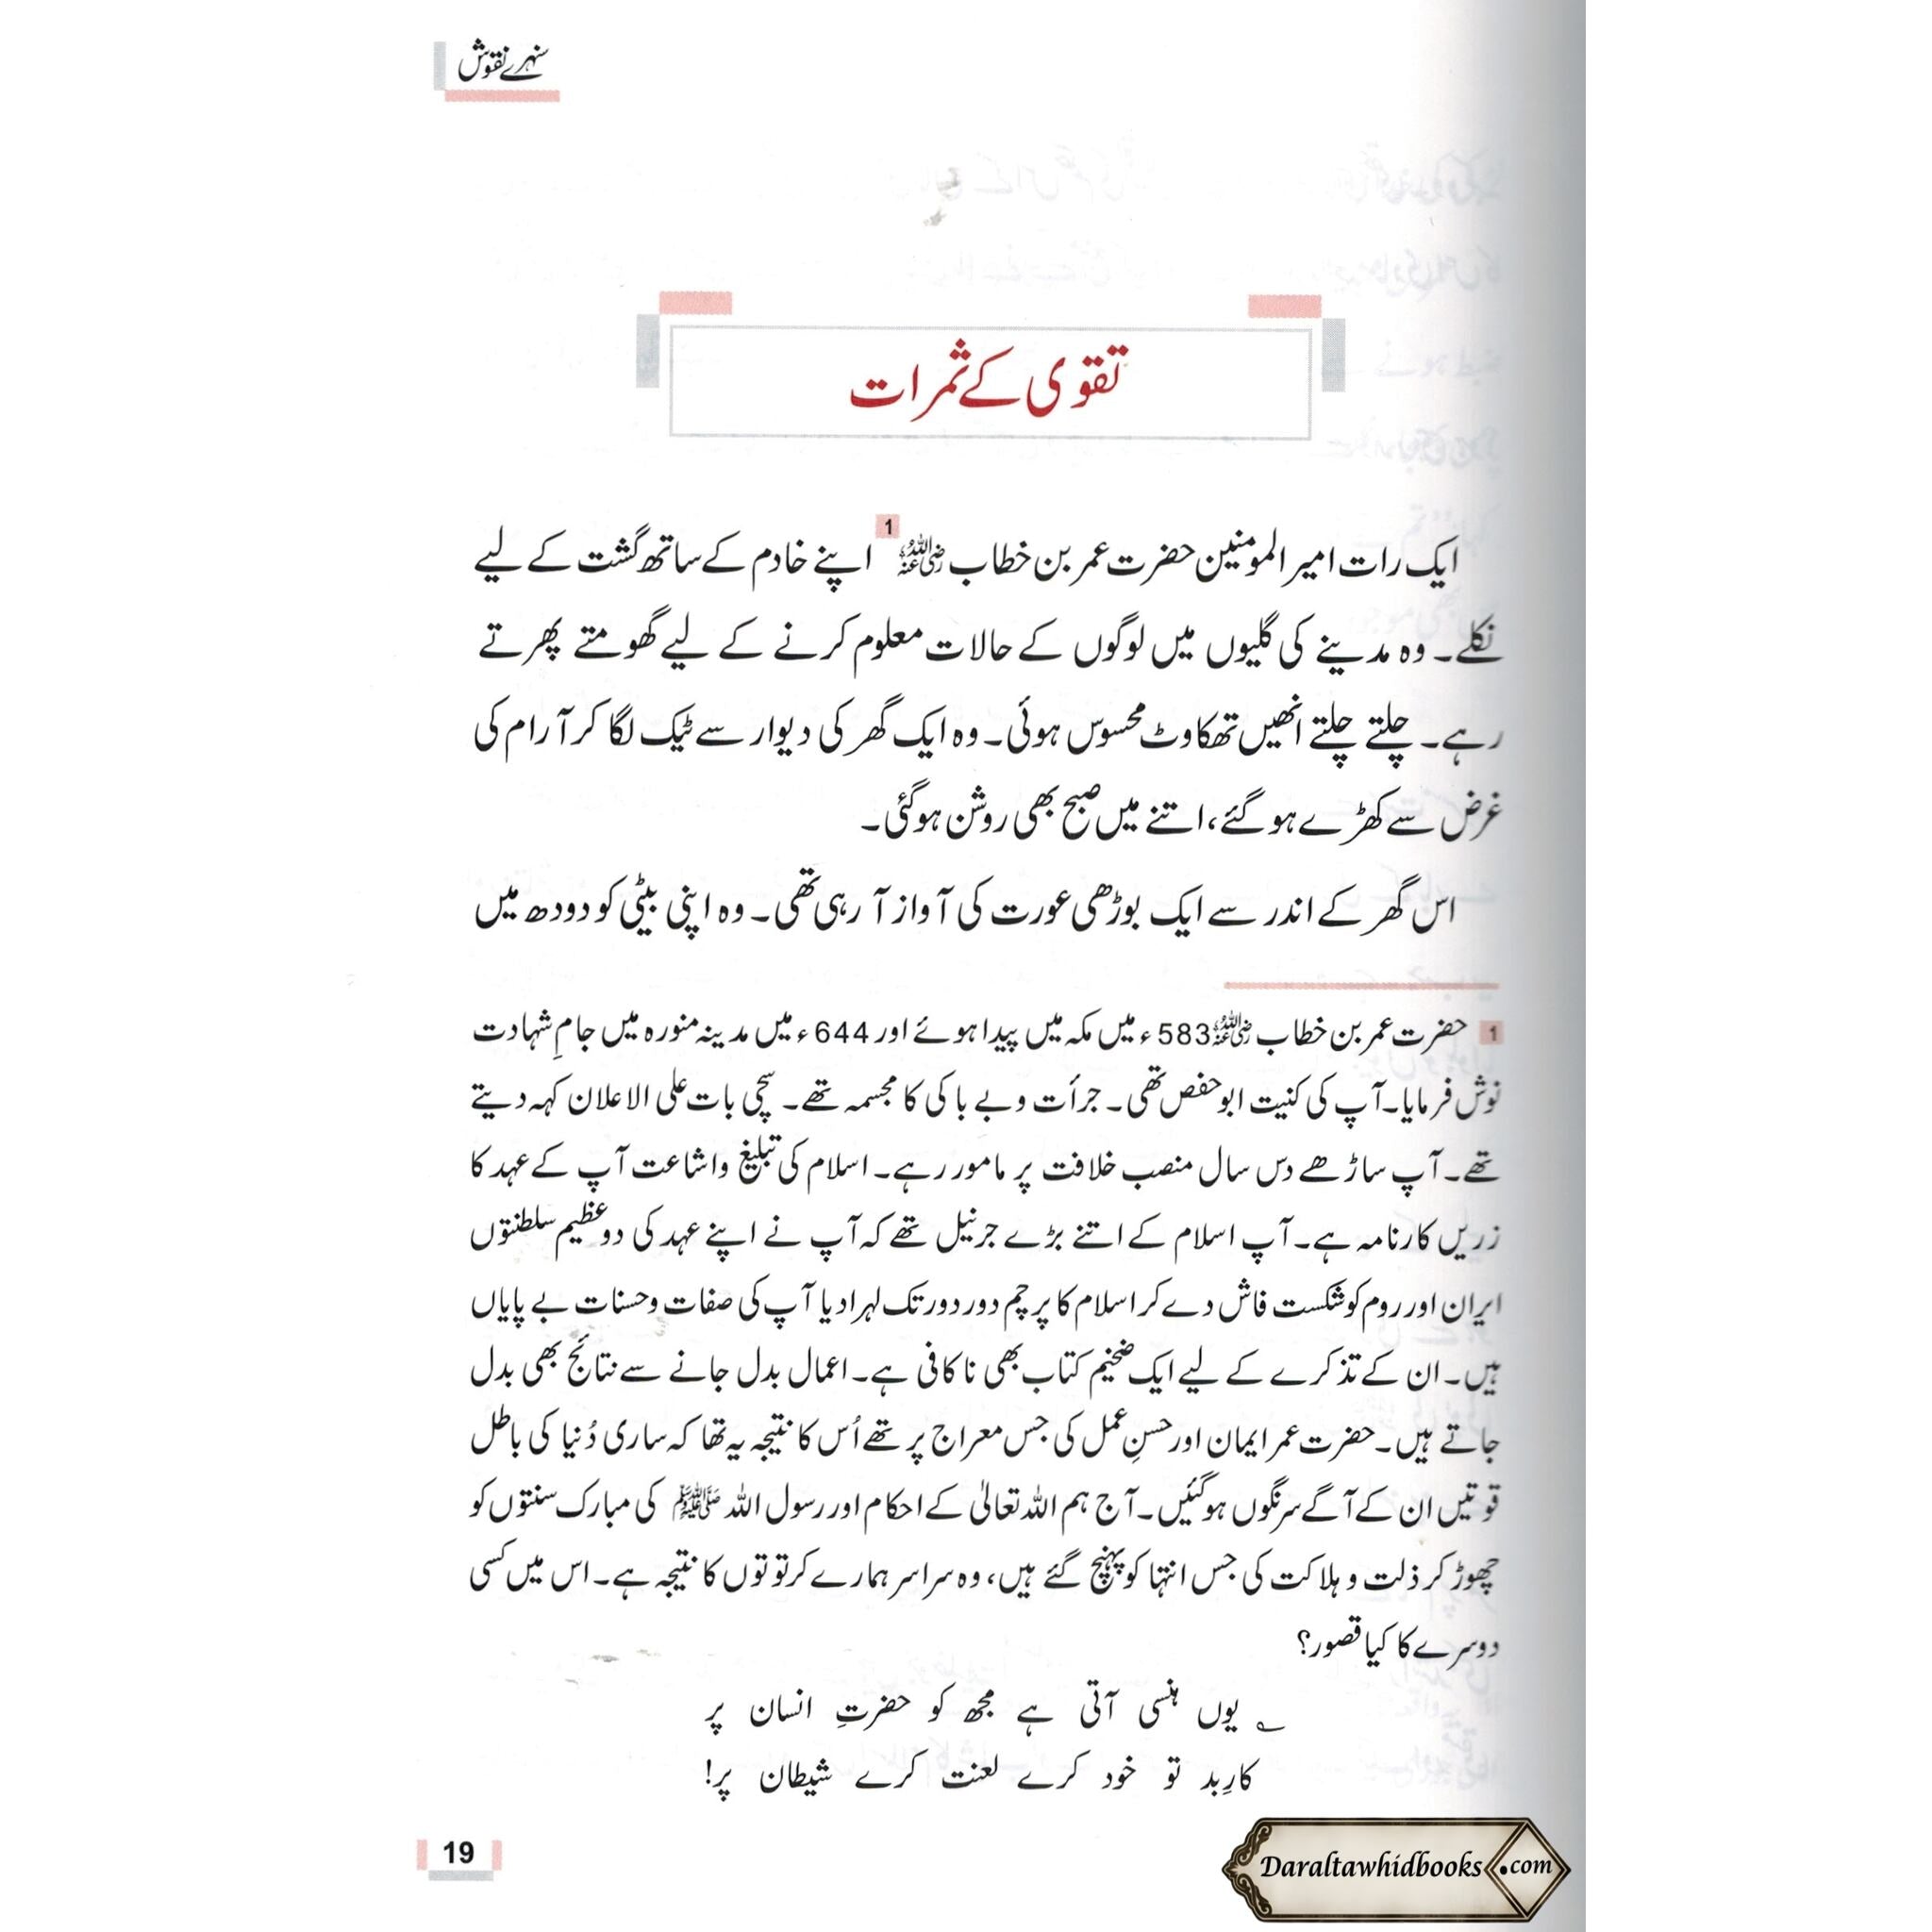 سنہرے نقوش
تقوی کے ثمرات
ایک رات امیر المومنین حضرت عمر بن خطاب رضی اللہ عنہ 1 اپنے خادم کے ساتھ گشت کے لیے
نکلے۔ وہ مدینے کی گلیوں میں لوگوں کے حالات معلوم کرنے کے لیے گھومتے پھرتے
رہے۔ چلتے چلتے انھیں تھکاوٹ محسوس ہوئی۔ وہ ایک گھر کی دیوار سے ٹیک لگا کر آرام کی
غرض سے کھڑے ہو گئے، اتنے میں صبح بھی روشن ہو گئی۔
اس گھر کے اندر سے ایک بوڑھی عورت کی آواز آ رہی تھی۔ وہ اپنی بیٹی کو دودھ میں
1 حضرت عمر بن خطاب رضی اللہ عنہ 583ء میں مکہ میں پیدا ہوئے اور 644ء میں مدینہ منورہ میں جامِ شہادت
نوش فرمایا۔ آپ کی کنیت ابو حفص تھی۔ جرأت و بے باکی کا مجسمہ تھے۔ سچی بات علی الاعلان کہہ دیتے
تھے۔ آپ ساڑھے دس سال منصب خلافت پر مامور رہے۔ اسلام کی تبلیغ و اشاعت آپ کے عہد کا
زریں کارنامہ ہے۔ آپ اسلام کے اتنے بڑے جرنیل تھے کہ آپ نے اپنے عہد کی دو عظیم سلطنتوں
ایران اور روم کو شکست فاش دے کر اسلام کا پرچم دور دور تک لہرا دیا آپ کی صفات و حسنات بے پایاں
ہیں۔ ان کے تذکرے کے لیے ایک ضخیم کتاب بھی ناکافی ہے۔ اعمال بدل جانے سے نتائج بھی بدل
جاتے ہیں۔ حضرت عمر ایمان اور حسنِ عمل کی جس معراج پر تھے اُس کا نتیجہ یہ تھا کہ ساری دُنیا کی باطل
قوتیں ان کے آگے سرنگوں ہو گئیں۔ آج ہم اللہ تعالیٰ کے احکام اور رسول اللہ ﷺ کی مبارک سنتوں کو
چھوڑ کر ذلت و ہلاکت کی جس انتہا کو پہنچ گئے ہیں، وہ سراسر ہمارے کرتوتوں کا نتیجہ ہے۔ اس میں کسی
دوسرے کا کیا قصور؟
؎ یوں ہنسی آتی ہے مجھ کو حضرتِ انسان پر
کارِ بد تو خود کرے لعنت کرے شیطان پر!
19
Daraltawhidbooks.com